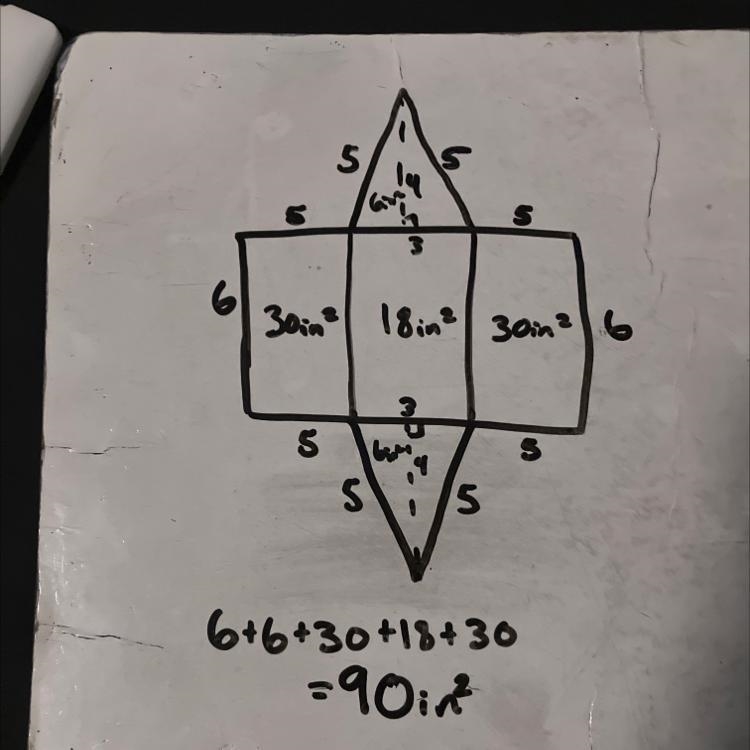 5 5
4
6in²
5 5
3
6 30in² 18in² 30in² 6
3
5 5
6in²
4
5 5
6+6+30+18+30
=90in²